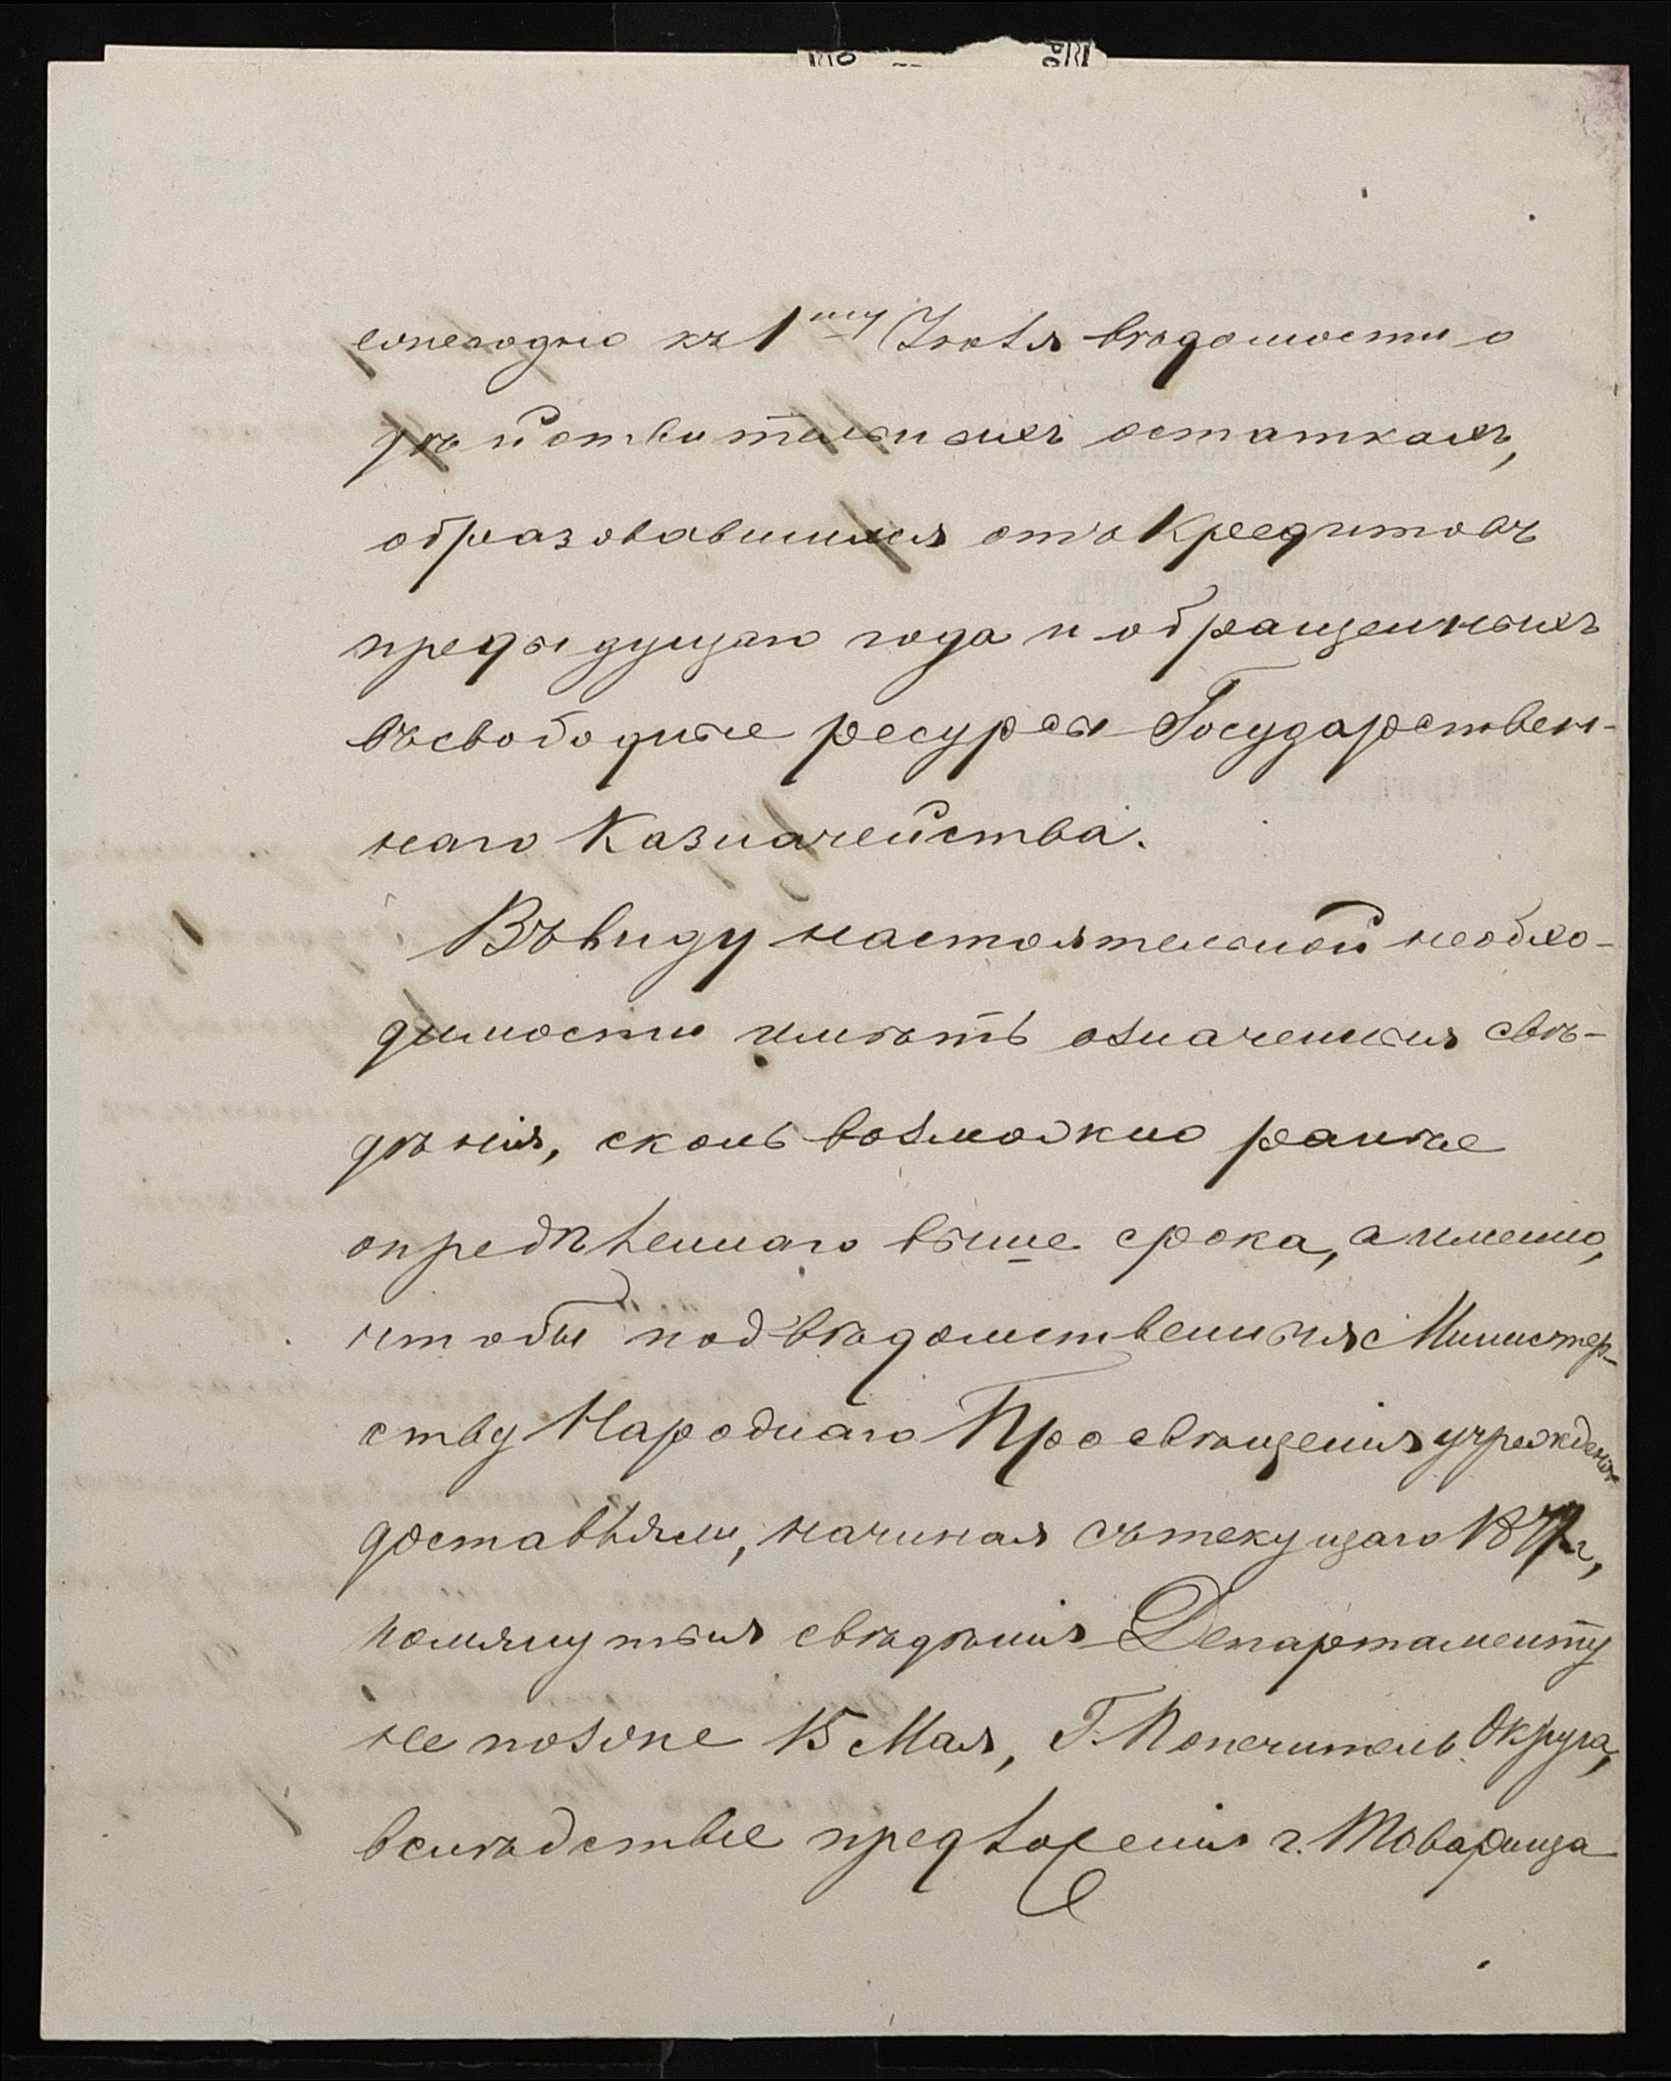 ежегодно къ 1му Іюля вѣдомости о
дѣйствительныхъ остаткахъ,
образовавшихся отъ кредитовъ
предыдущаго года и обращенныхъ
въ свободные ресурсы Государствен-
наго Казначейства.
Въ виду настоятельной необхо-
димости имѣть означенныя свѣ-
дѣнія, сколь возможно ранѣе
опредѣленнаго выше срока, а именно,
чтобы подвѣдомственныя Министер-
ству Народнаго Просвѣщенія учрежденія
доставляли, начиная съ текущаго г.,
помянутыя свѣдѣнія Департаменту
не позже 15 Мая, Г. Попечитель Округа,
вслѣдствіе предложенія г. Товарища